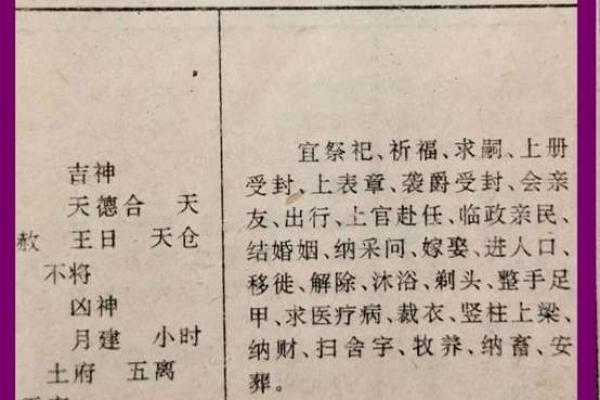 吉神
天德合 天
赦 王日 天仓
不将
凶神
月建 小时
土府 五离
宜祭祀、祈福、求嗣、上册
受封、上表章、袭爵受封、会亲
友、出行、上官赴任、临政亲民、
结婚姻、纳采问、嫁娶、进人口、
移徙、解除、沐浴、剃头、整手足
甲、求医疗病、裁衣、竖柱上梁、
纳财、扫舍宇、牧养、纳畜、安
葬。